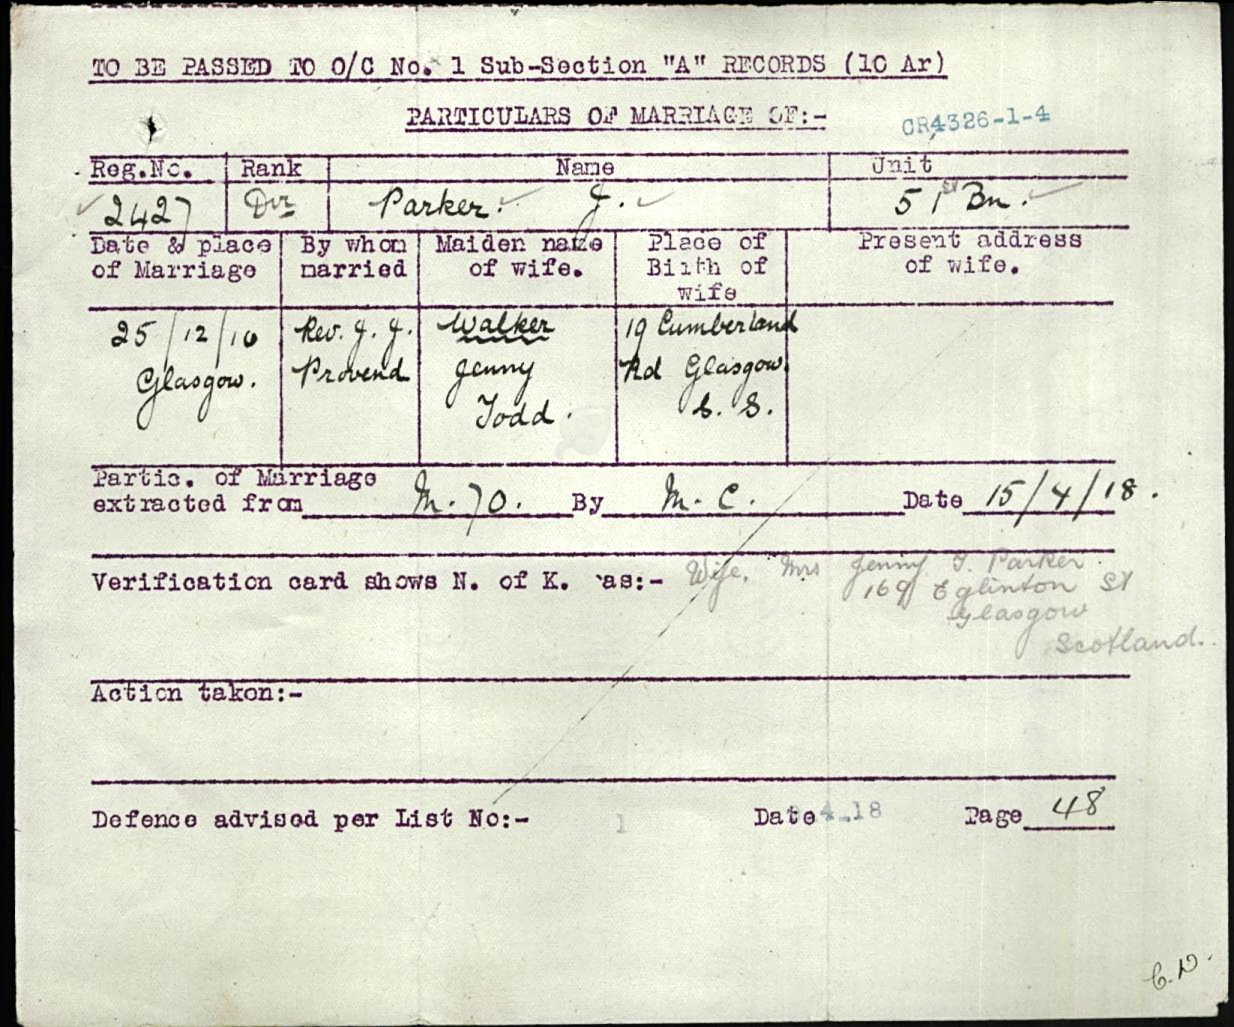 TO BE PASSED TO O/C No. 1 Sub-Section "A" RECORDS (10 Ar)
PARTICULARS OF MARRIAGE OF:-
CR4326-1-4
Reg.No. Rank Name Unit
2427 Dvr Parker. J. 51st Bn.
Date & place of Marriage
By whom married
Maiden name of wife.
Place of Birth of wife
Present address of wife.
25/12/16
Glasgow.
Rev. J. J.
Provend
Walker
Jenny
Todd.
19 Cumberland
Rd Glasgow.
S. S.
Partic. of Marriage
extracted from M. 70. By M. C. Date 15/4/18.
Verification card shows N. of K. as:- Wife, Mrs Jenny T. Parker
169 Eglinton St
Glasgow
Scotland.
Action taken:-
Defence advised per List No:- 1 Date 4.18 Page 48